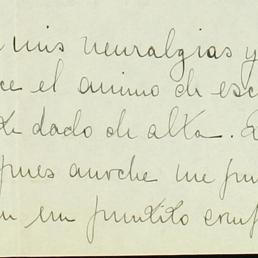 mis neuralgias y
ce el animo de esc
te dado de alta. E
pues anoche me pu
en un puntito conf